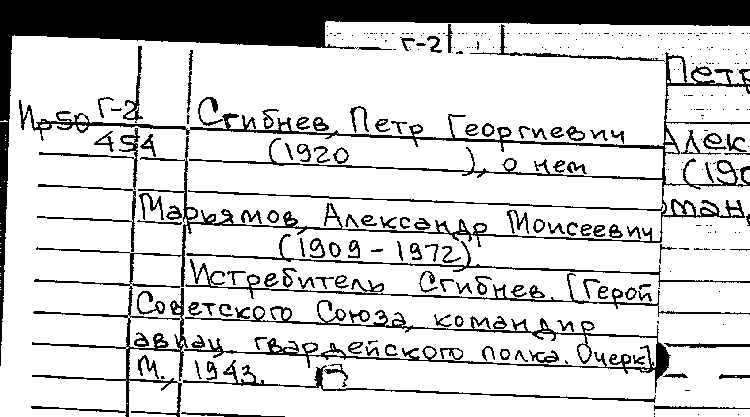 Г-2
Петр
Ир50 Г-2
454
Сгибнев, Петр Георгиевич
(1920 ), о нем
Алек
(190
оман,
Марьямов, Александр Моисеевич
(1909-1972).
Истребитель Сгибнев. [Герой
Советского Союза, командир
авиац. гвардейского полка. Очерк].
М., 1943.